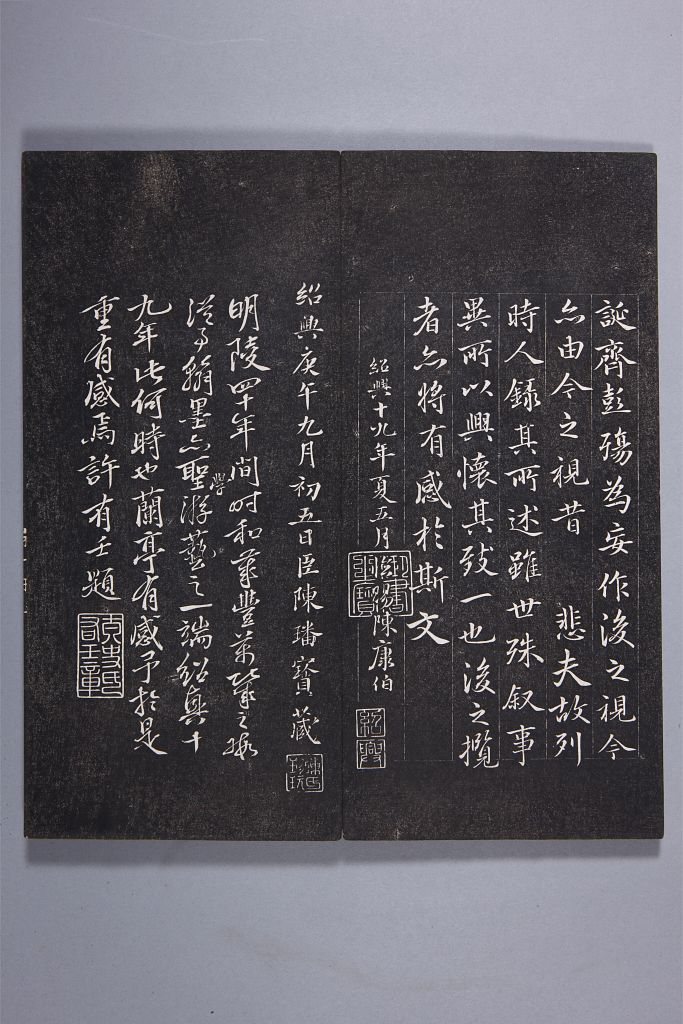 誕齊彭殤為妄作後之視今
亦由今之視昔 悲夫故列
時人錄其所述雖世殊叙事
異所以興懷其致一也後之攬
者亦將有感於斯文
紹興十九年夏五月 賜陳康伯
御書之寶
紹興
紹興庚午九月初五日臣陳璠寶藏
陳氏珍玩
明陵四十年間時和歲豐萬幾之暇
從事翰墨亦聖學游藝之一端紹興十
九年此何時也蘭亭有感予於是
重有感焉許有壬題